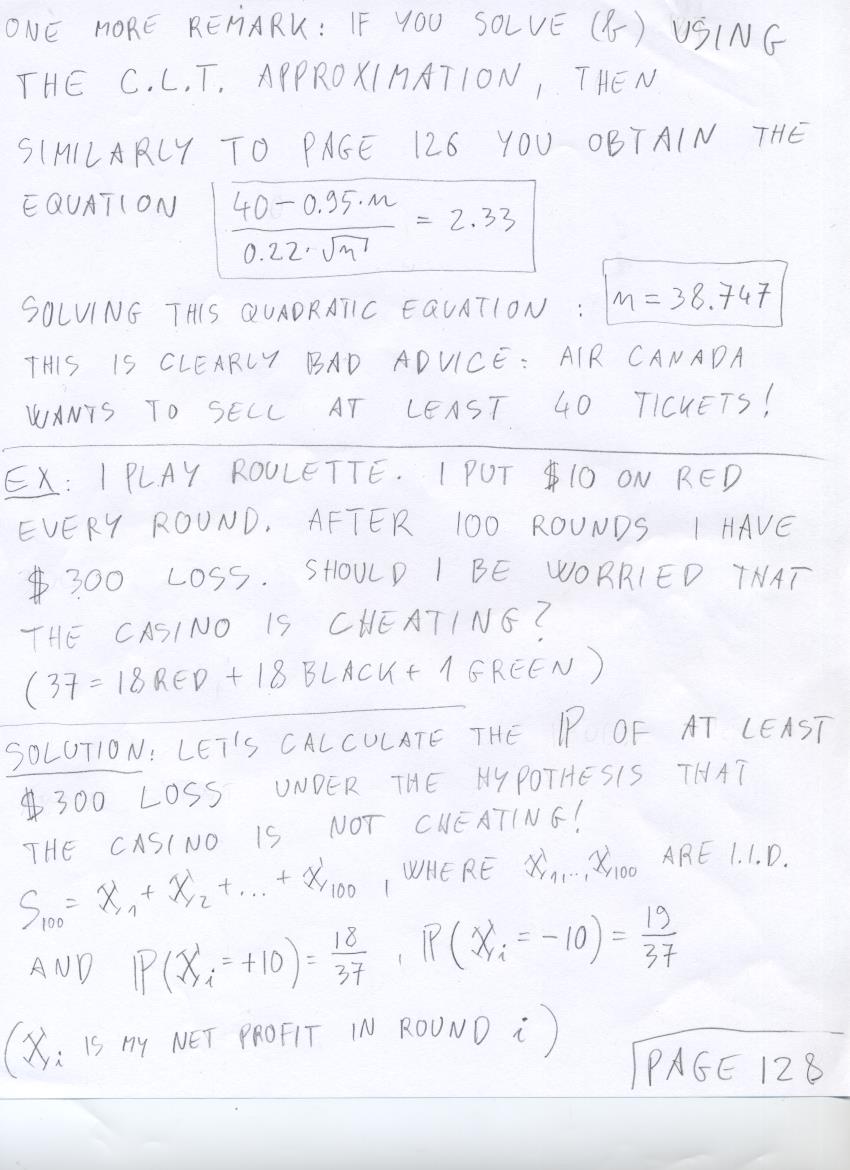 ONE MORE REMARK: IF YOU SOLVE (b) USING
THE C.L.T. APPROXIMATION, THEN
SIMILARLY TO PAGE 126 YOU OBTAIN THE
EQUATION (40-0.95·n)/(0.22·√n) = 2.33
SOLVING THIS QUADRATIC EQUATION : n=38.747
THIS IS CLEARLY BAD ADVICE: AIR CANADA
WANTS TO SELL AT LEAST 40 TICKETS!
EX: I PLAY ROULETTE. I PUT $10 ON RED
EVERY ROUND. AFTER 100 ROUNDS I HAVE
$300 LOSS. SHOULD I BE WORRIED THAT
THE CASINO IS CHEATING?
(37=18 RED + 18 BLACK + 1 GREEN)
SOLUTION: LET'S CALCULATE THE ℙ OF AT LEAST
$300 LOSS UNDER THE HYPOTHESIS THAT
THE CASINO IS NOT CHEATING!
S₁₀₀ = X₁ + X₂ + ... + X₁₀₀, WHERE X₁,...,X₁₀₀ ARE I.I.D.
AND ℙ(Xᵢ=+10)= 18/37, ℙ(Xᵢ=-10)= 19/37
(Xᵢ IS MY NET PROFIT IN ROUND i)
PAGE 128